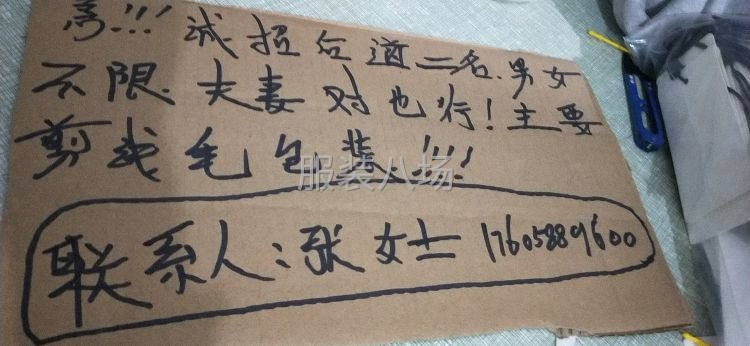 急!!! 诚招后道二名.男女
不限.夫妻对也行!主要
剪线毛包装.!!!!
服装八场
联系人:张女士 17605889600